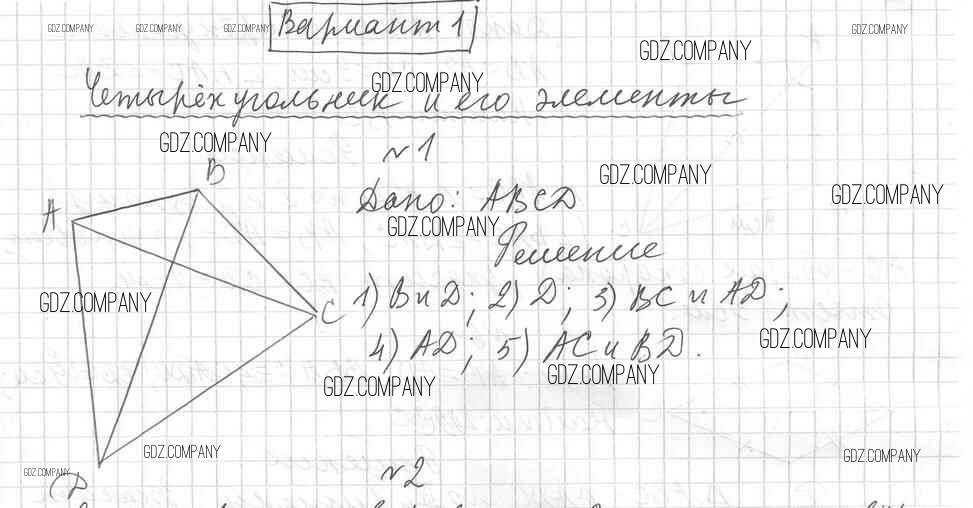 GDZ.COMPANY GDZ.COMPANY GDZ.COMPANY GDZ.COMPANY
Вариант 1
GDZ.COMPANY
GDZ.COMPANY
Четырёхугольник и его элементы
GDZ.COMPANY
N1
GDZ.COMPANY
GDZ.COMPANY
B
A
Дано: ABCD
GDZ.COMPANY
Решение
GDZ.COMPANY
C
1) B и D; 2) D; 3) BC и AD;
GDZ.COMPANY
4) AD; 5) AC и BD.
GDZ.COMPANY
GDZ.COMPANY
GDZ.COMPANY
GDZ.COMPANY
GDZ.COMPANY
D
N2